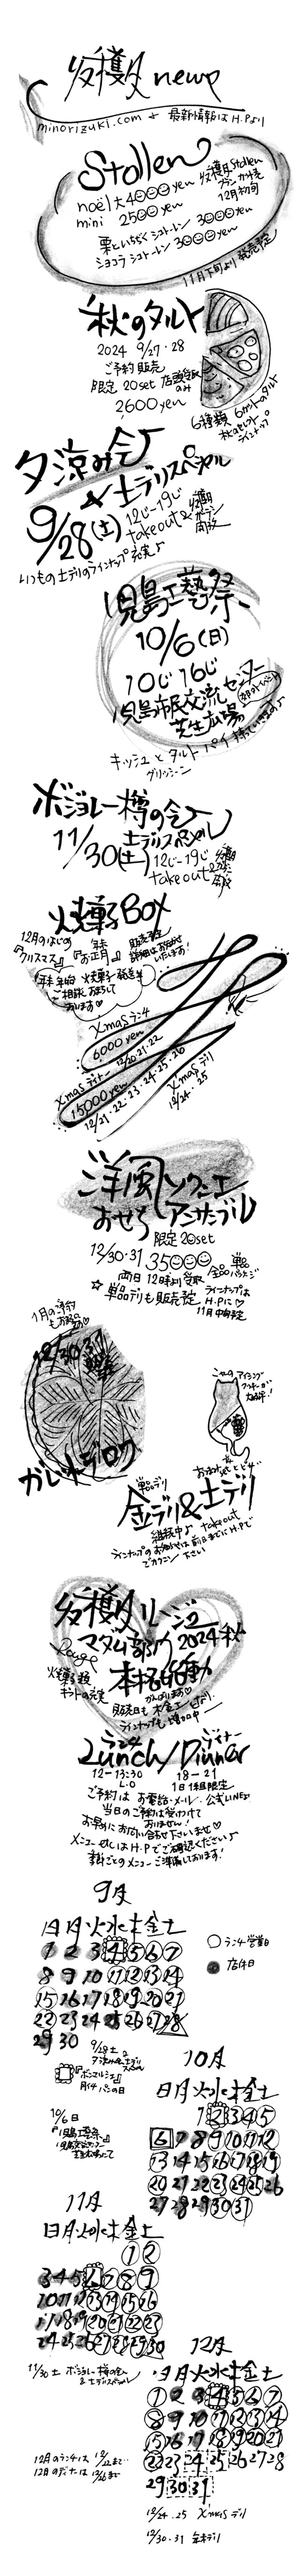 収穫月 news
minorizuki.com → 最新情報は H.Pより
Stollen
noël 大 4000yen
mini 2500yen
収穫月Stollen
12月初旬
栗といちじくシュトーレン 3000yen
ショコラシュトーレン 3000yen
11月下旬より 発売予定
秋のタルト
2024 9/27・28
ご予約販売
限定 20set 店頭受取のみ
2600yen
6種類 6カットのタルト
秋のセット
ラインナップ
夕涼み会
& 土デリスペシャル
9/28(土)
12じ-19じ
takeout&
収穫月
ガーデン
開放
いつもの土デリのラインナップ充実♪
児島工藝祭
10/6(日)
10じ-16じ
児島市民交流センター
芝生広場
キッシュとタルト パイ 持っていきます♪
グリッシーニ
ボジョレー樽の会
土デリスペシャル
11/30(土)
12じ-19じ
takeout&
焼菓子BOX
12月のはじめ
『クリスマス』
年末
『お正月』
販売予定
詳細はお知らせ
いたします!
年末年始 焼菓子発送
ご相談お待ちして
おります♡
Xmasランチ
6000yen
12/20・21・22
Xmasディナー
15000yen
12/21・22・23・24・25・26
Xmasデリ
12/24・25
洋風
おせち
アンサンブル
限定 20set
12/30・31 35000
両日 12時以降受取
☆ 単品デリも販売予定
ラインナップは
H.Pに♡
11月中旬予定
1月の予約
12/30 31
ガレットデロワ
このコのアイシング
クッキーが
大好評!
単品デリ
金デリ&土デリ
継続中♪ takeout
ラインナップのお知らせは前日までにH.Pで
ご確認下さい
収穫月リージュ
マダム部門 2024秋
Rouge
本格始動
焼菓子 類
ギフトの充実
がんばります♡
販売日も 木金土 日!
ラインナップも 増加中
ランチ ディナー
Lunch/Dinner
12-13:30 18-21
L.O 1日1組限定
ご予約は お電話・メール・公式LINEより
当日のご予約は受けかけて
おりません!
お早めにお問い合わせ下さいませ♡
メニューetcはH.Pでご確認ください♪
季節ごとのメニューご準備しております!
9月
日月火水木金土
1 2 3 4 5 6 7
8 9 10 11 12 13 14
15 16 17 18 19 20 21
22 23 24 25 26 27 28
29 30
○ ランチ営業日
● 店休日
9/28土
夕涼み会&土デリ
スペシャル
『ボンマルシェ』
月イチ パンの日
10/6日
『児島工藝祭』
児島市民交流センター
芝生広場にて
10月
日月火水木金土
1 2 3 4 5
6 7 8 9 10 11 12
13 14 15 16 17 18 19
20 21 22 23 24 25 26
27 28 29 30 31
11月
日月火水木金土
1 2
3 4 5 6 7 8 9
10 11 12 13 14 15 16
17 18 19 20 21 22 23
24 25 26 27 28 29 30
11/30土 ボジョレー樽の会
&土デリスペシャル
12月
日月火水木金土
1 2 3 4 5 6 7
8 9 10 11 12 13 14
15 16 17 18 19 20 21
22 23 24 25 26 27 28
29 30 31
12月のランチは 12/22まで…
12月のディナーは 12/26まで
12/24・25 Xmasデリ
12/30・31